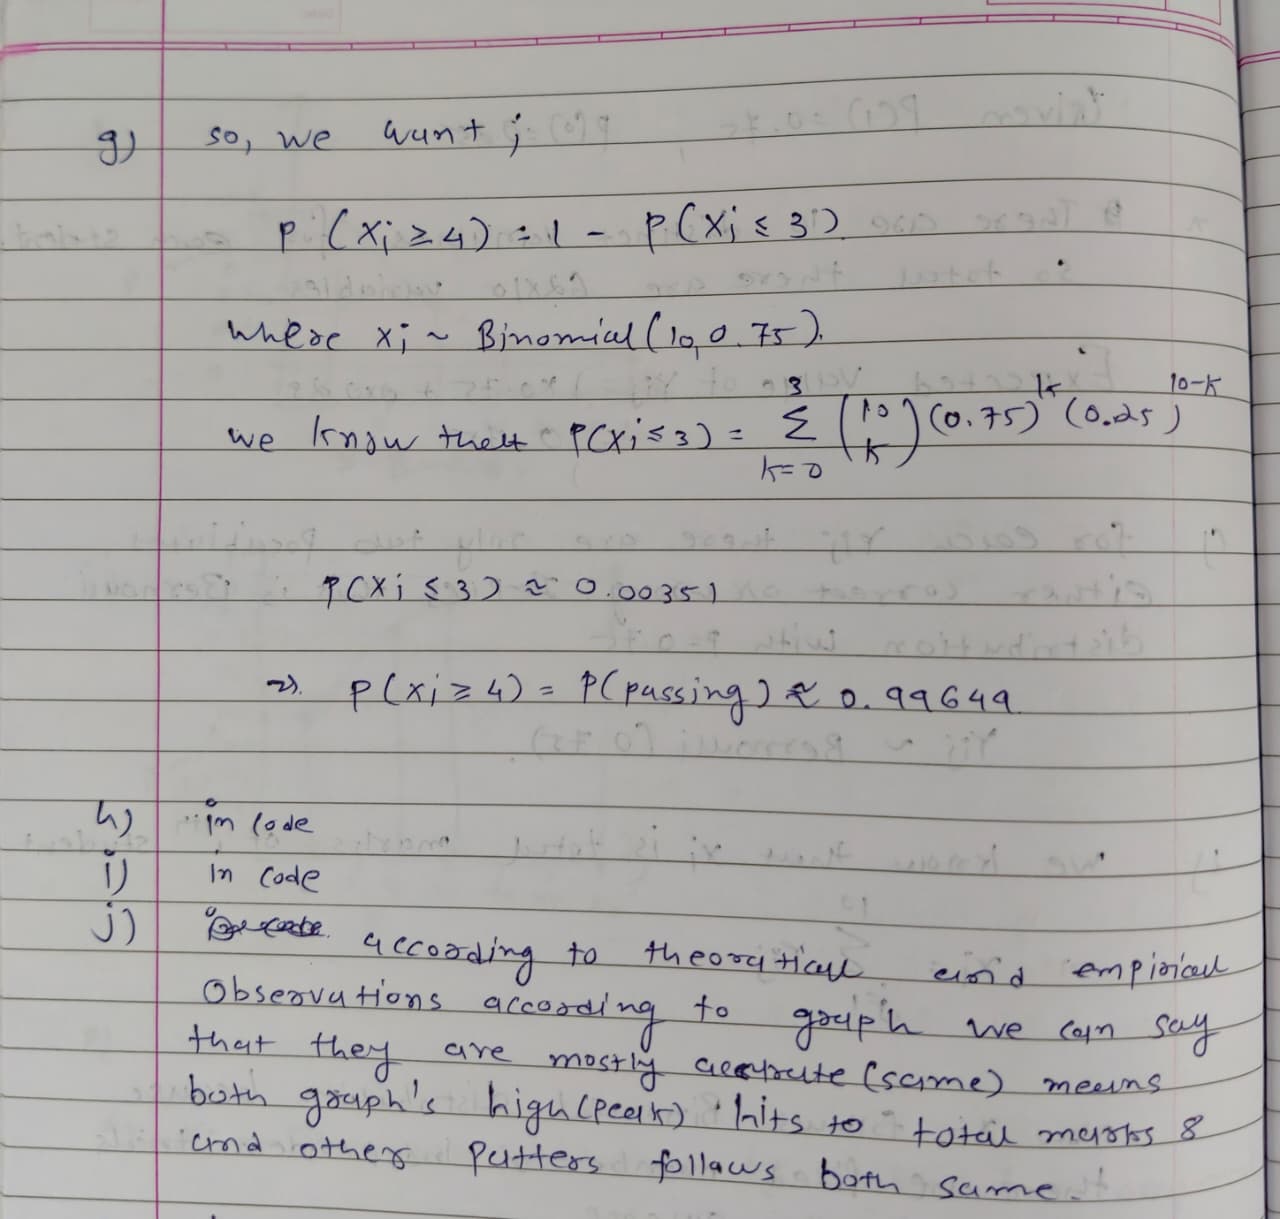 g) so, we want ;
P (Xi ≥ 4) = 1 - P(Xi ≤ 3)
where xi ~ Binomial (10, 0.75).
we know that P(Xi ≤ 3) = 3 Σ k=0 (10 k) (0.75)^k (0.25)^10-k
P(Xi ≤ 3) ≈ 0.00351
=>. P(xi ≥ 4) = P(passing) ≈ 0.99649
h) in code
i) in code
j) according to theoratical and empirical
Observations according to graph we can say
that they are mostly accurate (same) means
both graph's high (peak) hits to total marks 8
and other patters follows both same.